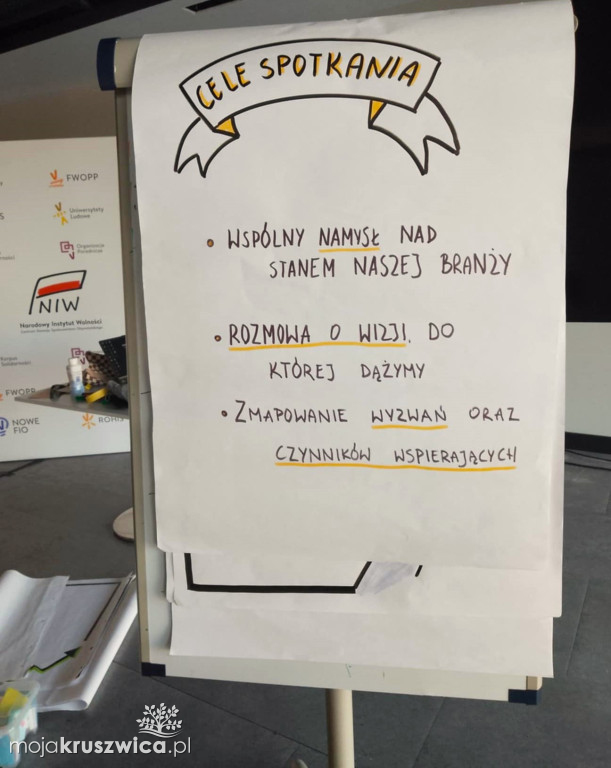 CELE SPOTKANIA
• WSPÓLNY NAMYSŁ NAD
STANEM NASZEJ BRANŻY
• ROZMOWA O WIZJI, DO
KTÓREJ DĄŻYMY
• ZMAPOWANIE WYZWAŃ ORAZ
CZYNNIKÓW WSPIERAJĄCYCH
FWOPP
Uniwersytety
Ludowe
NIW
Narodowy Instytut Wolności
FWOPP
NOWE
FIO
mojakruszwica.pl